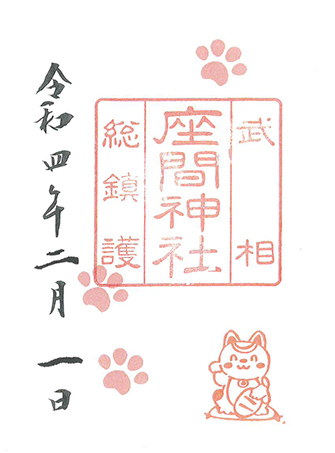 武相
座間神社
総鎮護
令和四年二月一日